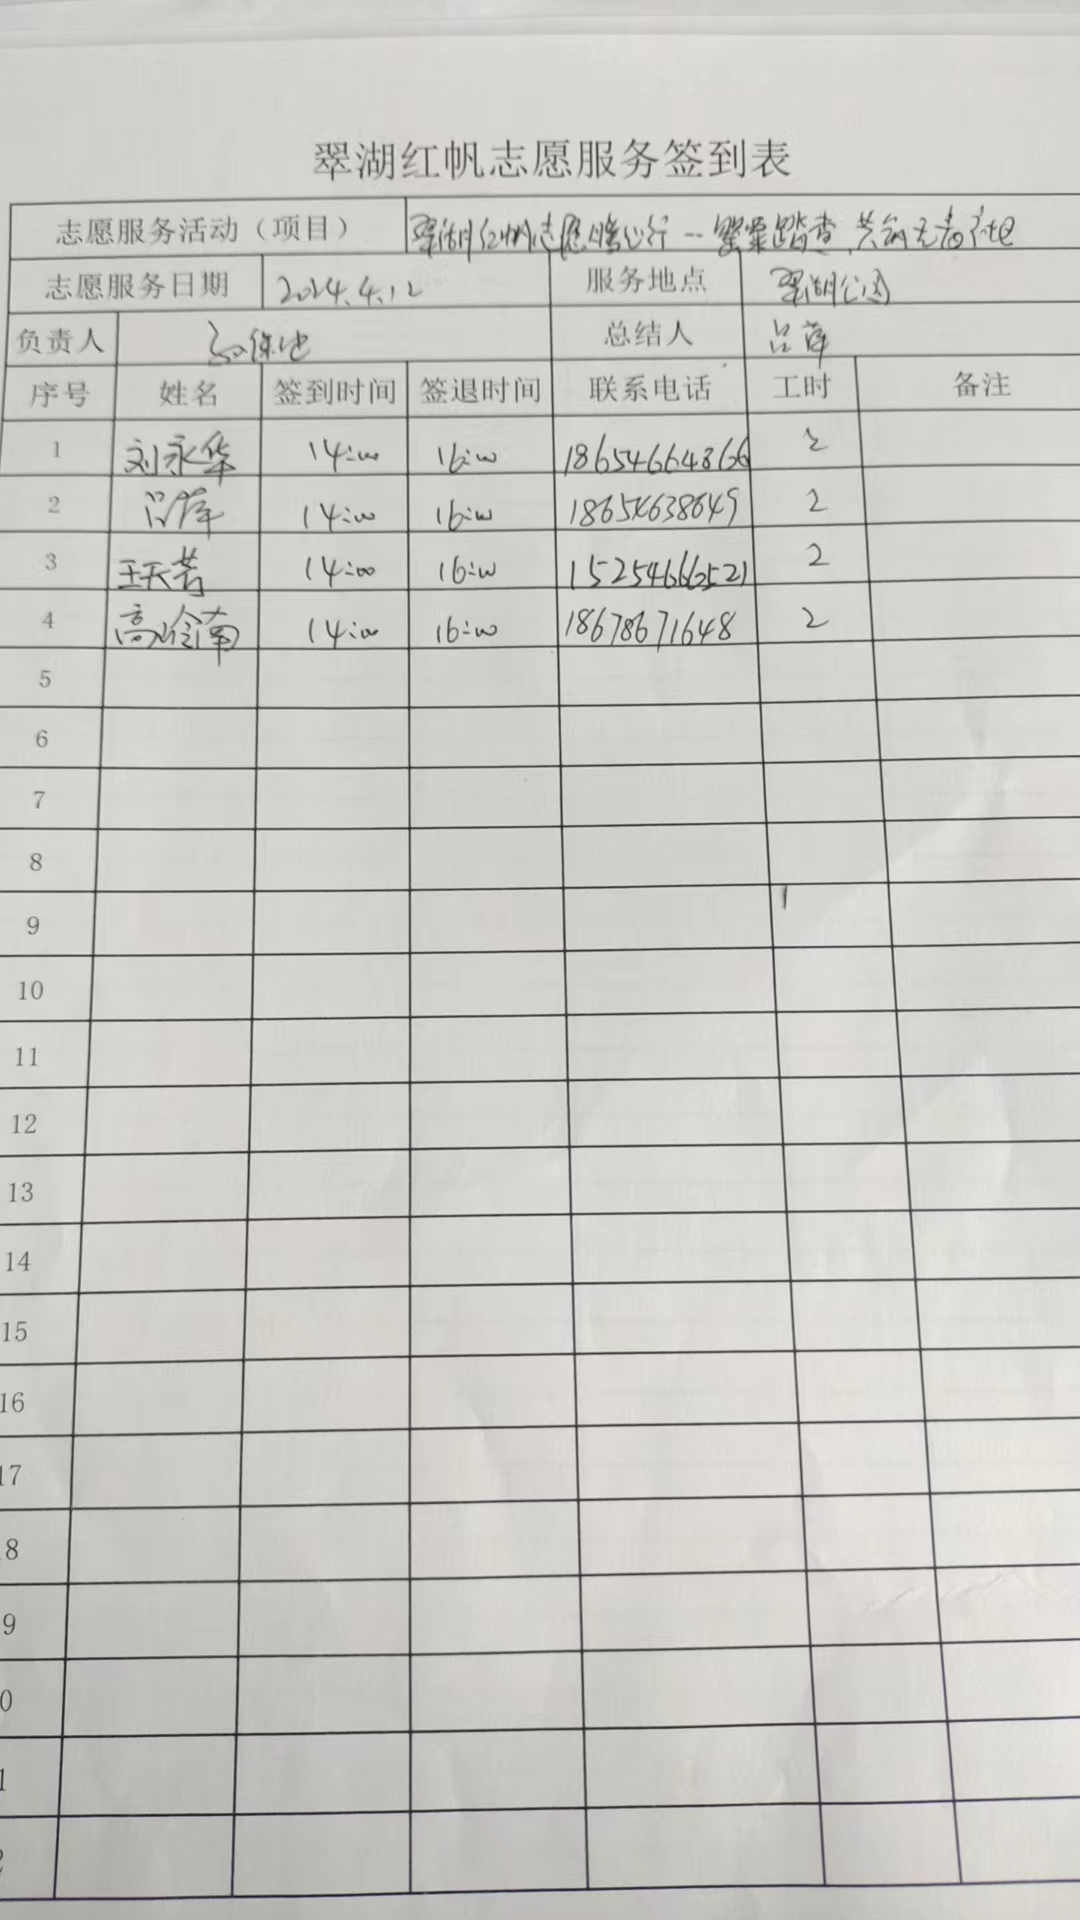 翠湖红帆志愿服务签到表
志愿服务活动（项目） 翠湖红帆志愿暖心行--罂粟踏查,共筑无毒社区
志愿服务日期 2024.4.12 服务地点 翠湖公园
负责人 总结人 吕萍
序号 姓名 签到时间 签退时间 联系电话 工时 备注
1 刘永华 14:00 16:00 18654664866 2
2 吕萍 14:00 16:00 18654638649 2
3 王天若 14:00 16:00 15254666521 2
4 高岭南 14:00 16:00 18678671648 2
5
6
7
8
9
10
11
12
13
14
15
16
17
8
9
0
1
2